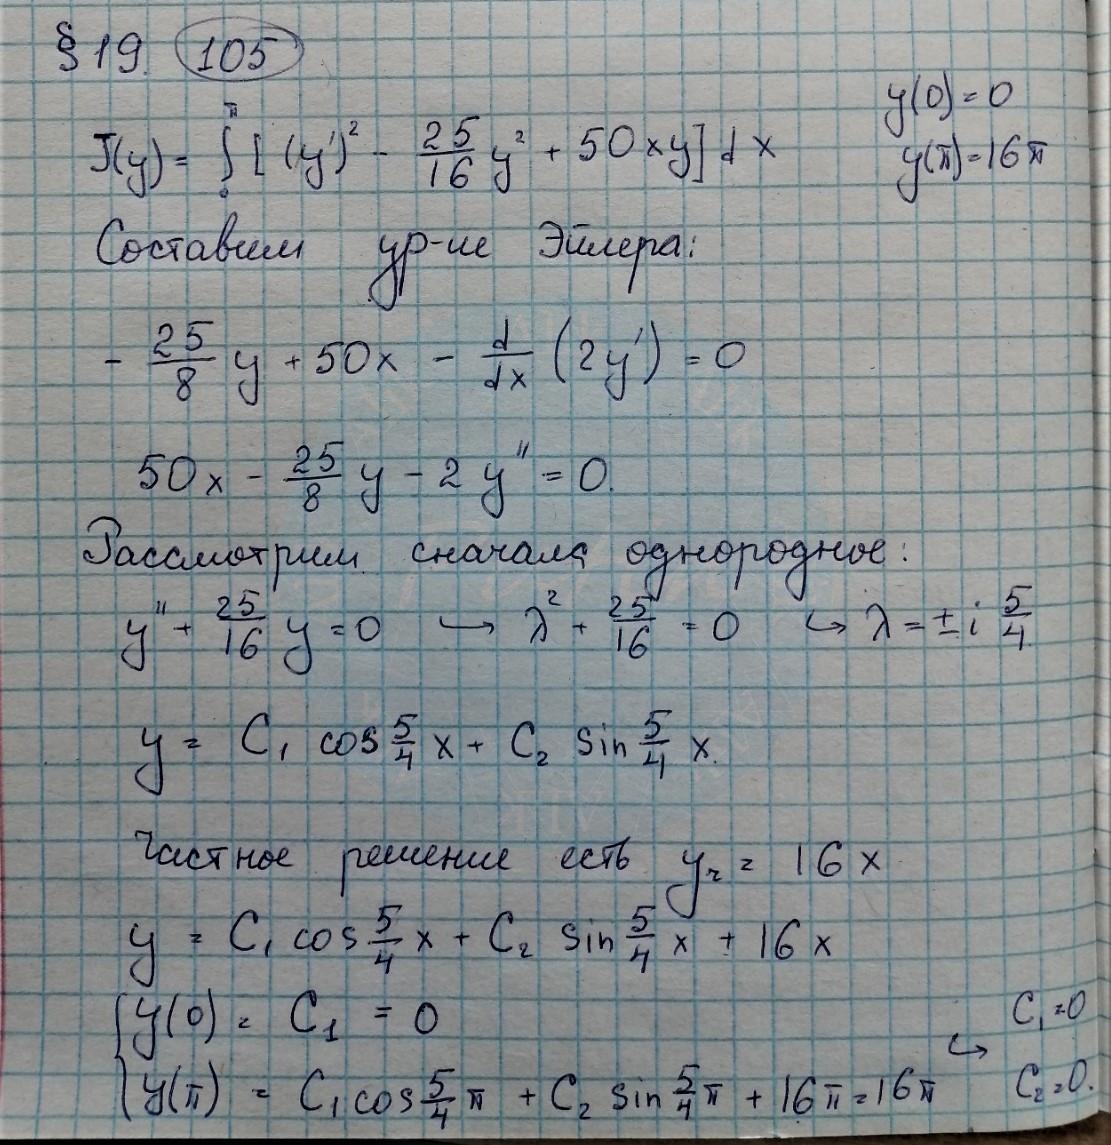 § 19. 105
y(0) = 0
J(y) = ∫₀^π [ (y')² - 25/16 y² + 50xy] dx
y(π) = 16π
Составим ур-ие Эйлера:
- 25/8 y + 50x - d/dx (2y') = 0
50x - 25/8 y - 2y'' = 0.
Рассмотрим сначала однородное:
y'' + 25/16 y = 0 ↪ λ² + 25/16 = 0 ↪ λ = ± i 5/4
y = C₁ cos 5/4 x + C₂ sin 5/4 x.
Частное решение есть yч = 16x
y = C₁ cos 5/4 x + C₂ sin 5/4 x + 16x
{ y(0) = C₁ = 0 ↪ C₁ = 0
y(π) = C₁ cos 5/4 π + C₂ sin 5/4 π + 16π = 16π C₂ = 0.